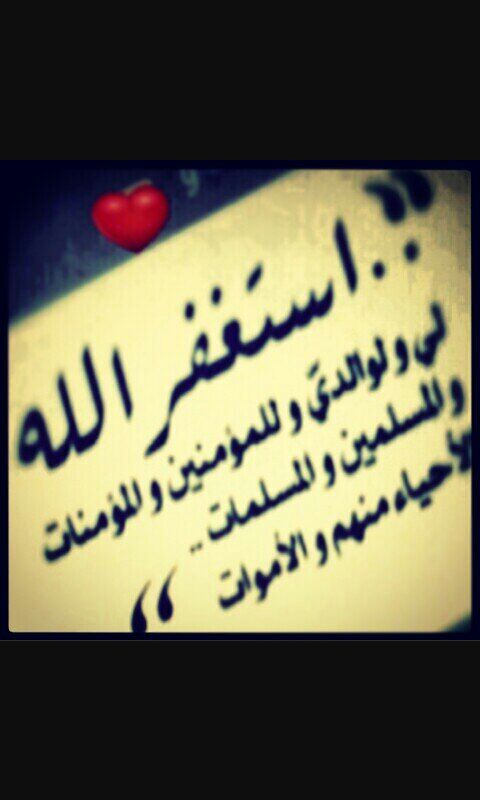 ”..استغفر الله
لي ولوالديّ وللمؤمنين وللمؤمنات
والمسلمين والمسلمات ..
الأحياء منهم والأموات “